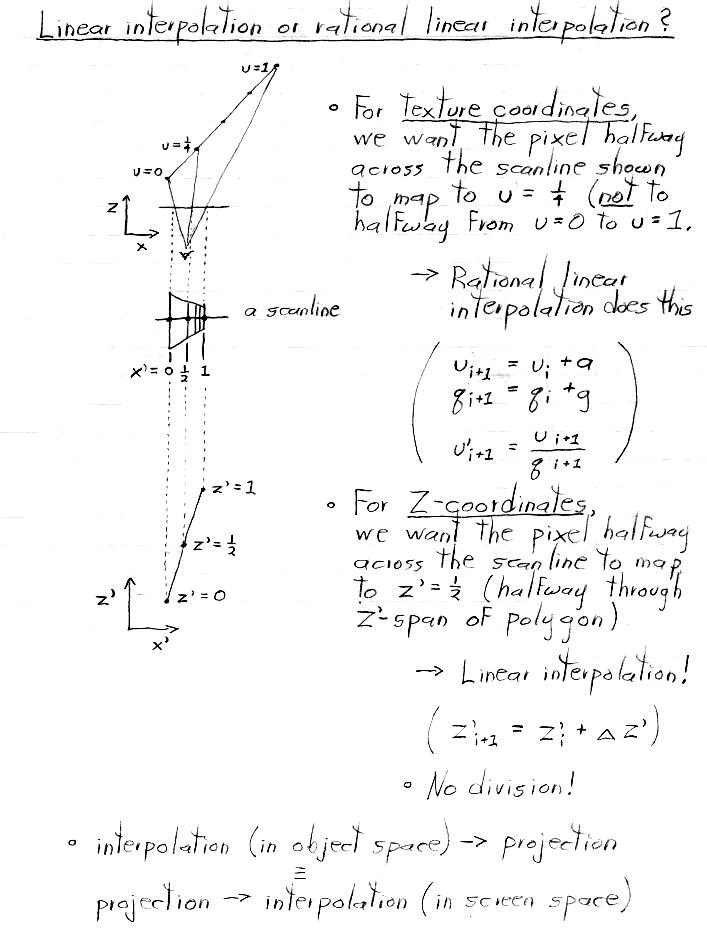 Linear interpolation or rational linear interpolation?
u=1
u=1/4
u=0
z
x
a scanline
x'= 0 1/2 1
z'=1
z'=1/2
z'=0
z'
x'
◦ For texture coordinates,
we want the pixel halfway
across the scanline shown
to map to u = 1/4 (not to
halfway from u=0 to u=1.
→ Rational linear
interpolation does this
( u_{i+1} = u_i + a
q_{i+1} = q_i + g
u'_{i+1} = u_{i+1} / q_{i+1} )
◦ For Z-coordinates,
we want the pixel halfway
across the scanline to map
to z'=1/2 (halfway through
Z'-span of polygon)
→ Linear interpolation!
( z'_{i+1} = z'_i + △ z')
◦ No division!
◦ interpolation (in object space) → projection
≡
projection → interpolation (in screen space)